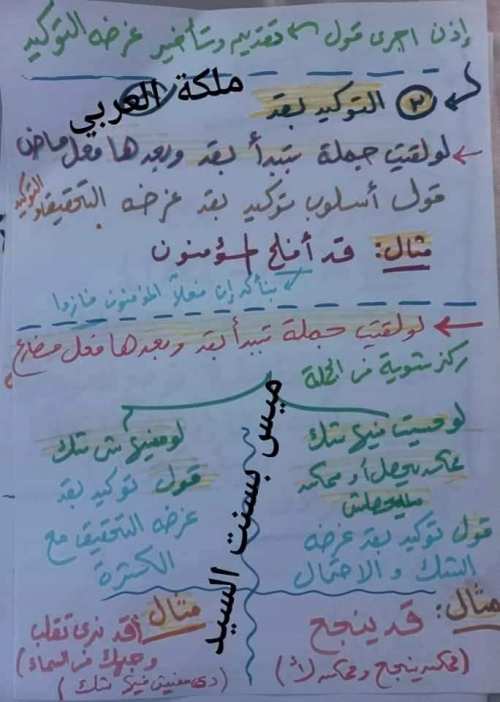 إذن اجرى قول ← تقديم وتأخير غرضه التوكيد
ملكة العربي
٢ التوكيد بقد
لو لقيت جملة بتبدأ بقد وبعدها فعل ماض
قول أسلوب توكيد بقد غرضه التحقيق والتوكيد
مثال: قد أفلح المؤمنون
بنأكد إن فعلاً المؤمنون فازوا
لو لقيت جملة تبدأ بقد وبعدها فعل مضارع
ركز شوية فى الجملة
لو حسيت فيها شك
ممكن يحصل أو ممكن
ميحصلش
قول توكيد بقد غرضه
الشك والاحتمال
مثال: قد ينجح
(ممكن ينجح وممكن لأ)
لو مفيهاش شك
قول توكيد بقد
غرضه التحقيق مع
الكثرة
مثال قد نرى تقلب
وجهك فى السماء
(دى مفيش فيها شك)
ميس بسنت السيد